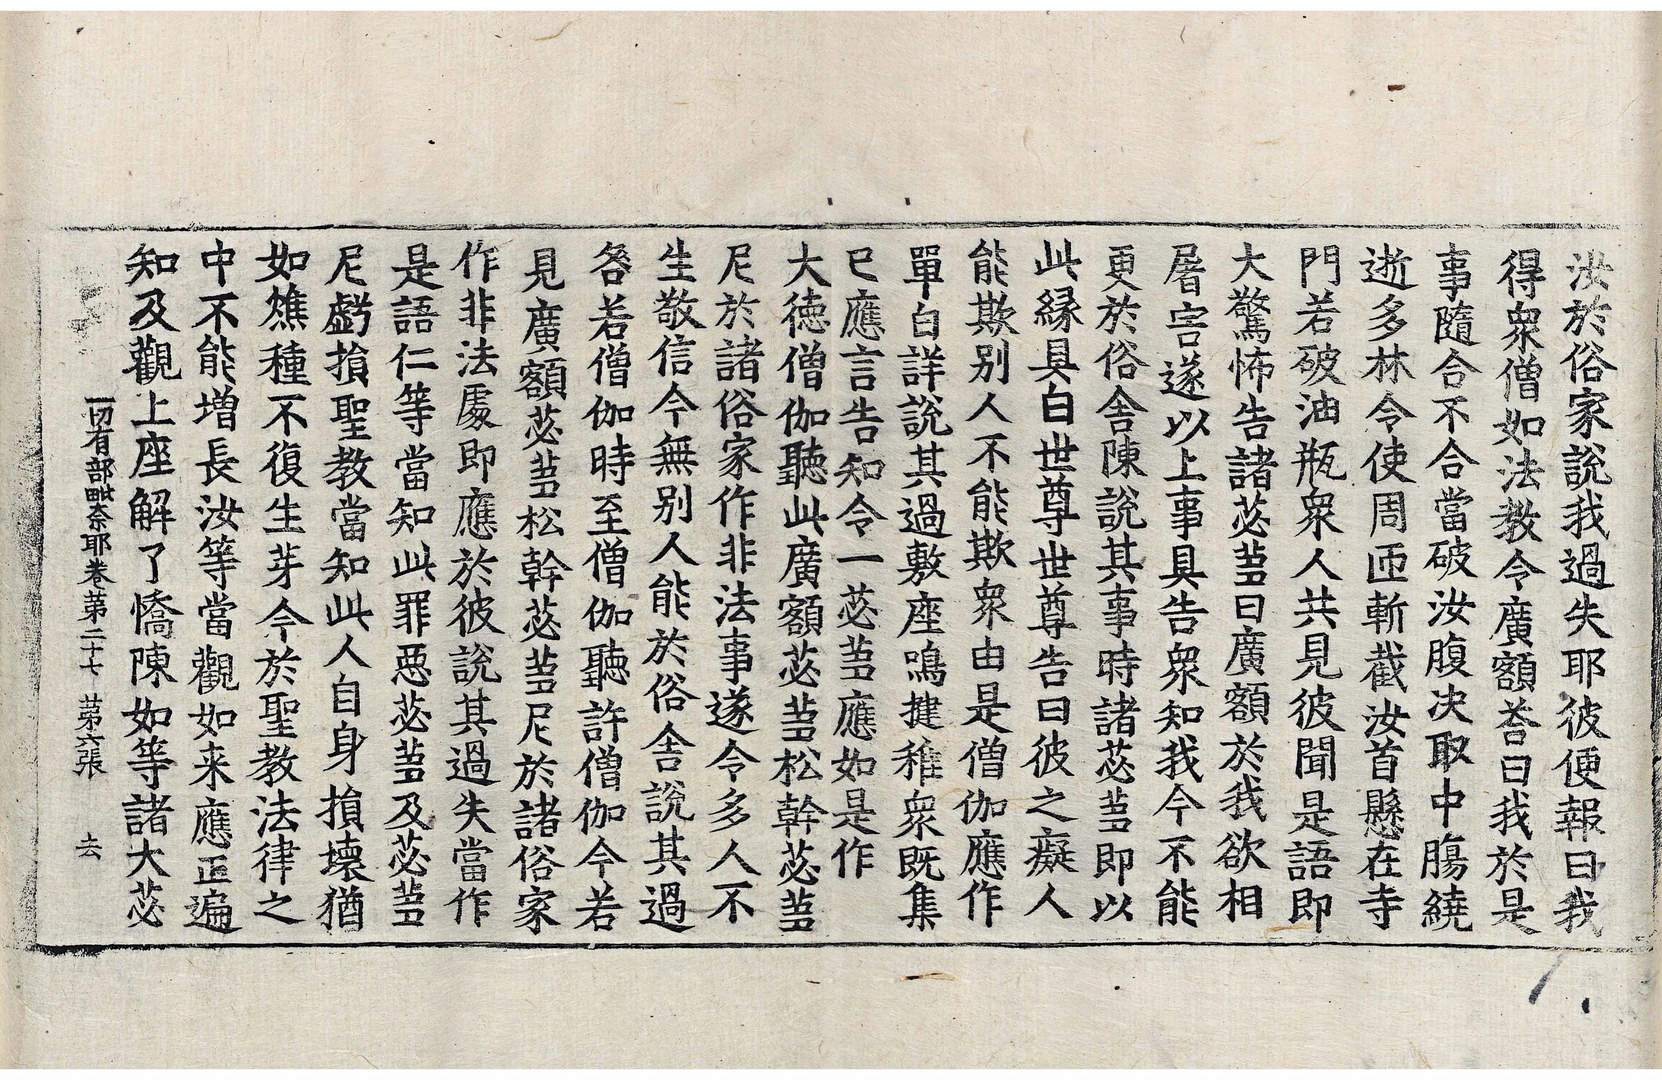 汝於俗家說我過失耶彼便報曰我
得衆僧如法教令廣額荅曰我於是
事隨合不合當破汝腹決取中膓繞
逝多林令使周匝斬截汝首懸在寺
門若破油瓶衆人共見彼聞是語即
大驚怖告諸苾蒭曰廣額於我欲相
屠害遂以上事具告衆知我今不能
更於俗舍陳說其事時諸苾蒭即以
此緣具白世尊世尊告曰彼之癡人
能欺别人不能欺衆由是僧伽應作
單白詳說其過敷座鳴揵稚衆既集
已應言告知令一苾蒭應如是作
大徳僧伽聽此廣額苾蒭松幹苾蒭
尼於諸俗家作非法事遂令多人不
生敬信今無别人能於俗舍說其過
咎若僧伽時至僧伽聽許僧伽今若
見廣額苾蒭松幹苾蒭尼於諸俗家
作非法處即應於彼說其過失當作
是語仁等當知此罪惡苾蒭及苾蒭
尼虧損聖教當知此人自身損壞猶
如燋種不復生芽今於聖教法律之
中不能增長汝等當觀如来應正遍
知及觀上座解了憍陳如等諸大苾
一切有部毗奈耶卷苐二十七 苐六張 去